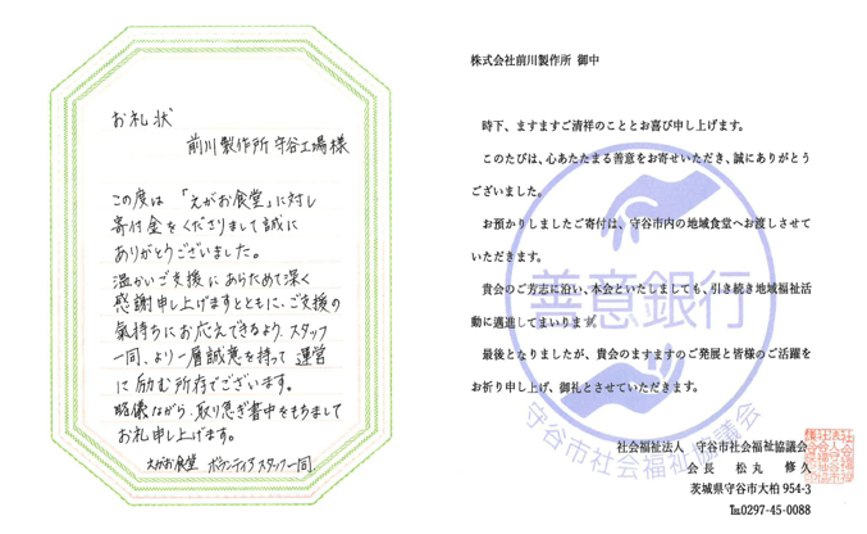 お礼状
前川製作所 守谷工場様
この度は「えがお食堂」に対し
寄付金をくださりまして誠に
ありがとうございました。
温かいご支援にあらためて深く
感謝申し上げますとともに、ご支援の
氣持ちにお応えできるよう、スタッフ
一同、より一層誠意を持って運営
に励む所存でございます。
略儀ながら、取り急ぎ書中をもちまして
お礼申し上げます。
えがお食堂 ボランティアスタッフ一同.
株式会社前川製作所 御中
時下、ますますご清祥のこととお喜び申し上げます。
このたびは、心あたたまる善意をお寄せいただき、誠にありがとう
ございました。
お預かりしましたご寄付は、守谷市内の地域食堂へお渡しさせて
いただきます。
貴会のご芳志に沿い、本会といたしましても、引き続き地域福祉活
動に邁進してまいります。
最後となりましたが、貴会のますますのご発展と皆様のご活躍を
お祈り申し上げ、御礼とさせていただきます。
善意銀行
守谷市社会福祉協議会
社会福祉法人 守谷市社会福祉協議会
会長 松丸 修久
茨城県守谷市大柏 954-3
℡0297-45-0088